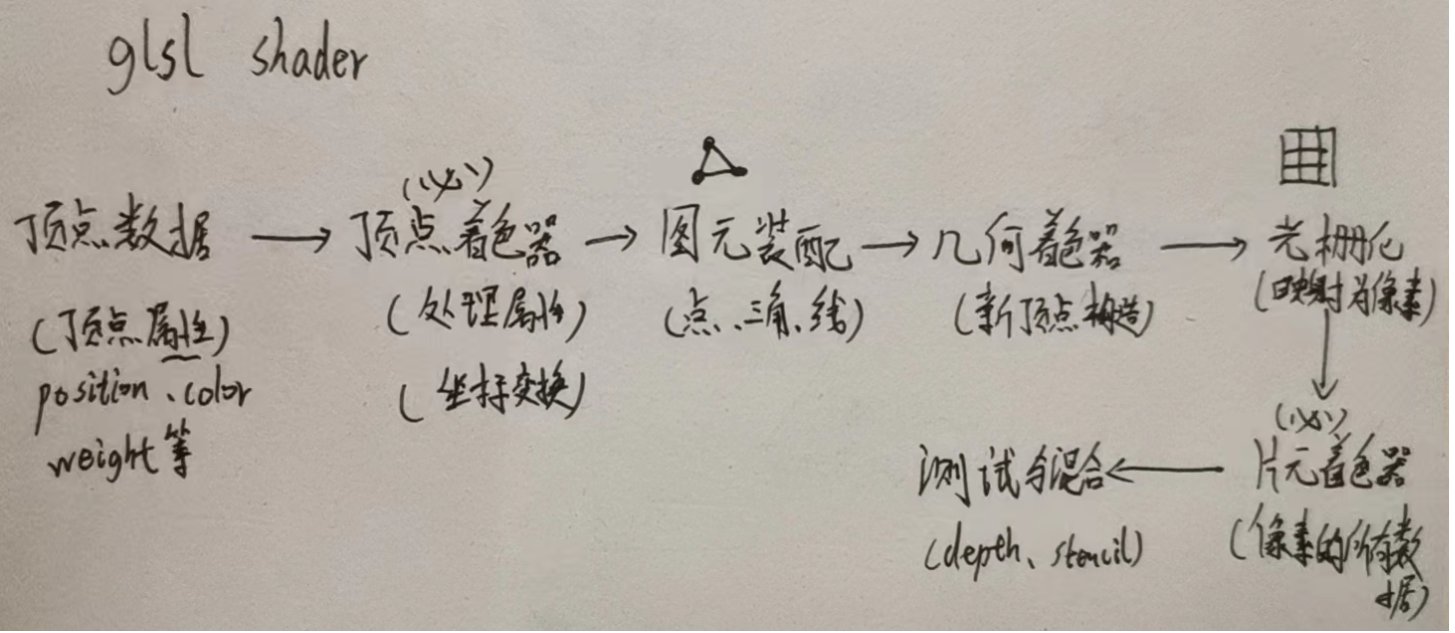 glsl shader
(必)
顶点数据 → 顶点着色器 → 图元装配 → 几何着色器 → 光栅化
(顶点属性) (处理属性) (点、三角、线) (新顶点构造) (映射为像素)
position、color (坐标变换)
weight等
(必)
测试与混合 ← 片元着色器
(depth、stencil) (像素的所有数
据)